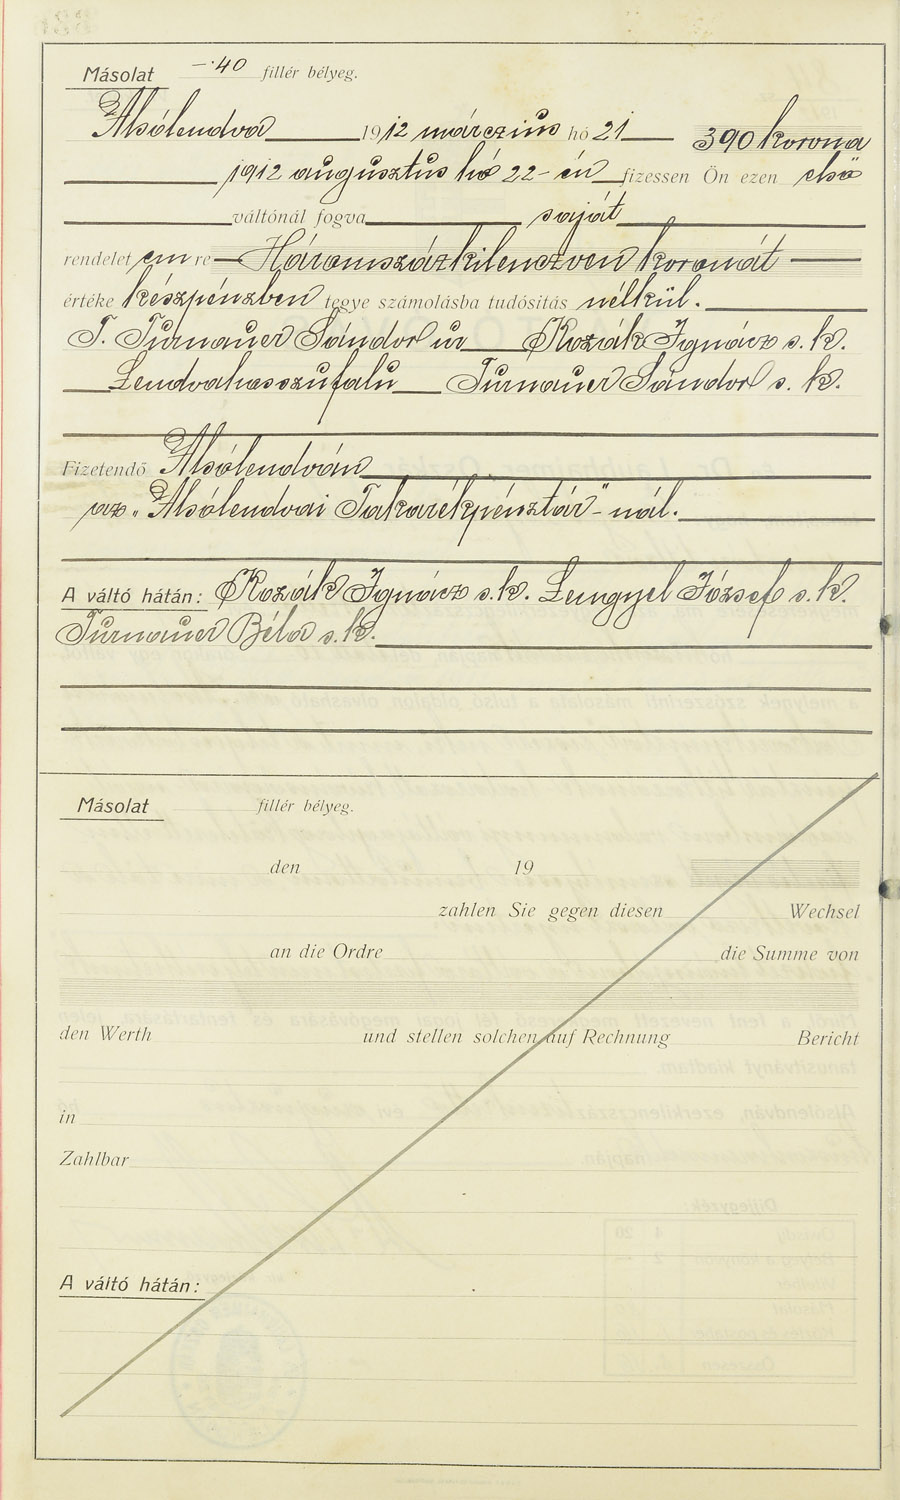 Másolat —·40 fillér bélyeg.
Alsólendva 1912 márczius hó 21 390 korona
1912 augusztus hó 22-én fizessen Ön ezen első
váltónál fogva saját
rendeletemre Háromszázkilenczven koronát
értéke készpénzben tegye számolásba tudósítás nélkül.
T. Turnauer Sándor úr Kozák Ignácz s. k.
Lendvahosszufalu Turnauer Sándor s. k.
Fizetendő Alsólendván
az „Alsólendvai Takarékpénztár"-nál.
A váltó hátán: Kozák Ignácz s. k. Lengyel József s. k.
Turnauer Béla s. k.
Másolat fillér bélyeg.
den 19
zahlen Sie gegen diesen Wechsel
an die Ordre die Summe von
den Werth und stellen solchen auf Rechnung Bericht
in
Zahlbar
A váltó hátán: